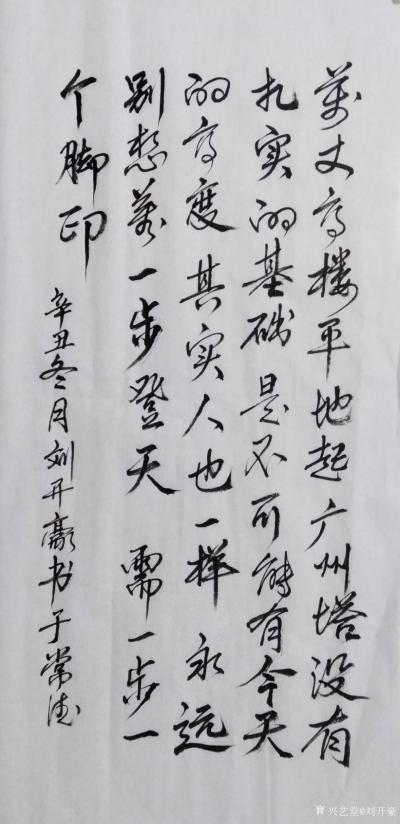 萬丈高楼平地起广州塔没有
扎实的基础是不可能有今天
的高度其实人也一样永远
别想着一步登天需一步一
个脚印
辛丑冬月刘开豪书于常德
兴艺堂@刘开豪